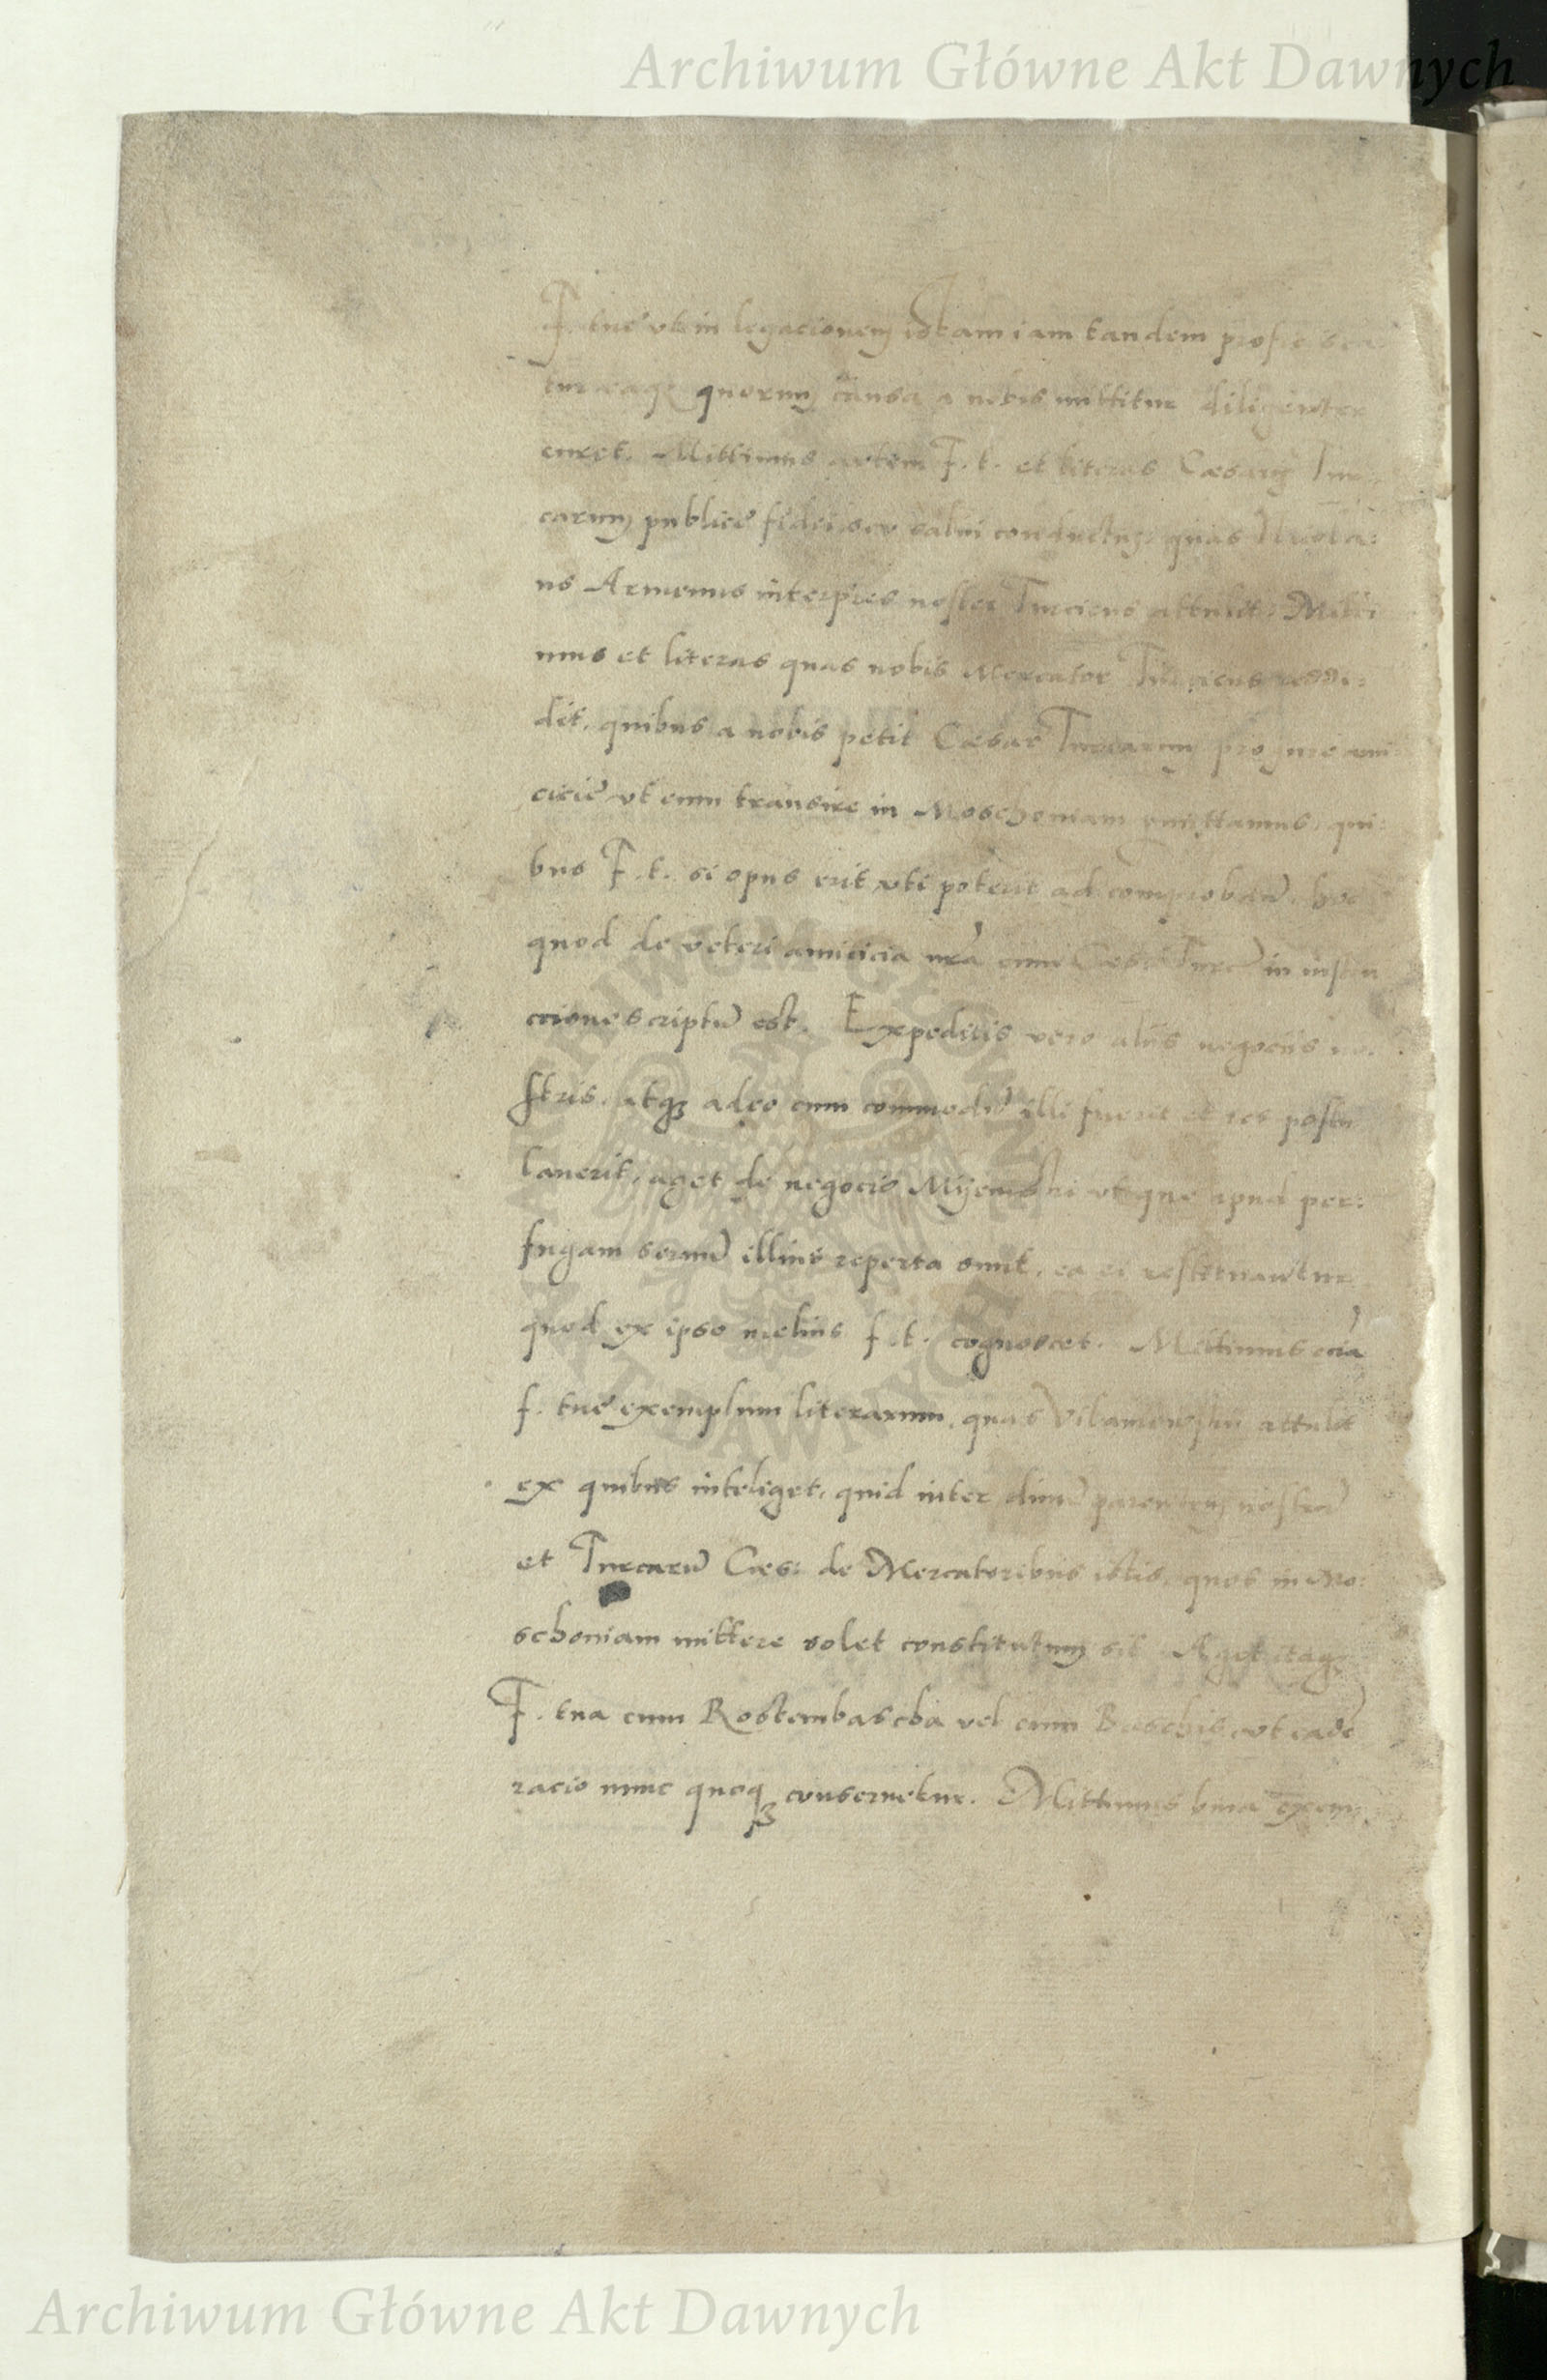 Archiwum Główne Akt Dawnych
F. tue ut in legacionem istam iam tandem proficisca:
tur eaqꝫ quorum causa a nobis mittitur diligenter
curet. Mittimus autem F. t. et literas Cæsaris Tur:
carum publice fidei seu salvi conductus, quas Nicola:
us Armenus interpres noster Turcicus attulit. Mitti
mus et literas quas nobis Mercator Turcicus reddi:
dit, quibus a nobis petit Cæsar Turcarum pro jure ami:
cicie ut eum transire in Moschoviam permittamus, qui:
bus F. t. si opus erit uti poterit ad comprobandũ hoc
quod de veteri amicicia nrã cum Cæs: Turcarũ in instru
ccione scriptũ est. Expeditis vero aliis negociis no:
stris, atqꝫ adeo cum commodũ illi fuerit et res postu
laverit, aget de negocio Mijewski ut que apud per:
fugam servũ illius reperta sunt, ea ei restituantur
quod ex ipso melius f. t. cognoscet. Mittimus eciã
f. tue exemplum literarum, quas Vilamowski attulit
ex quibus inteliget, quid inter divũ parentem nostrũ
et Turcarũ Cæs: de Mercatoribus istis, quos in Mo:
schoviam mittere solet constitutum sit. Aget itaqꝫ
F. tua cum Rostembascha vel cum Baschis, ut eadẽ
racio nunc quoqꝫ conservetur. Mittimus bina exem:
ARCHIWUM GŁÓWNE AKT DAWNYCH
Archiwum Główne Akt Dawnych